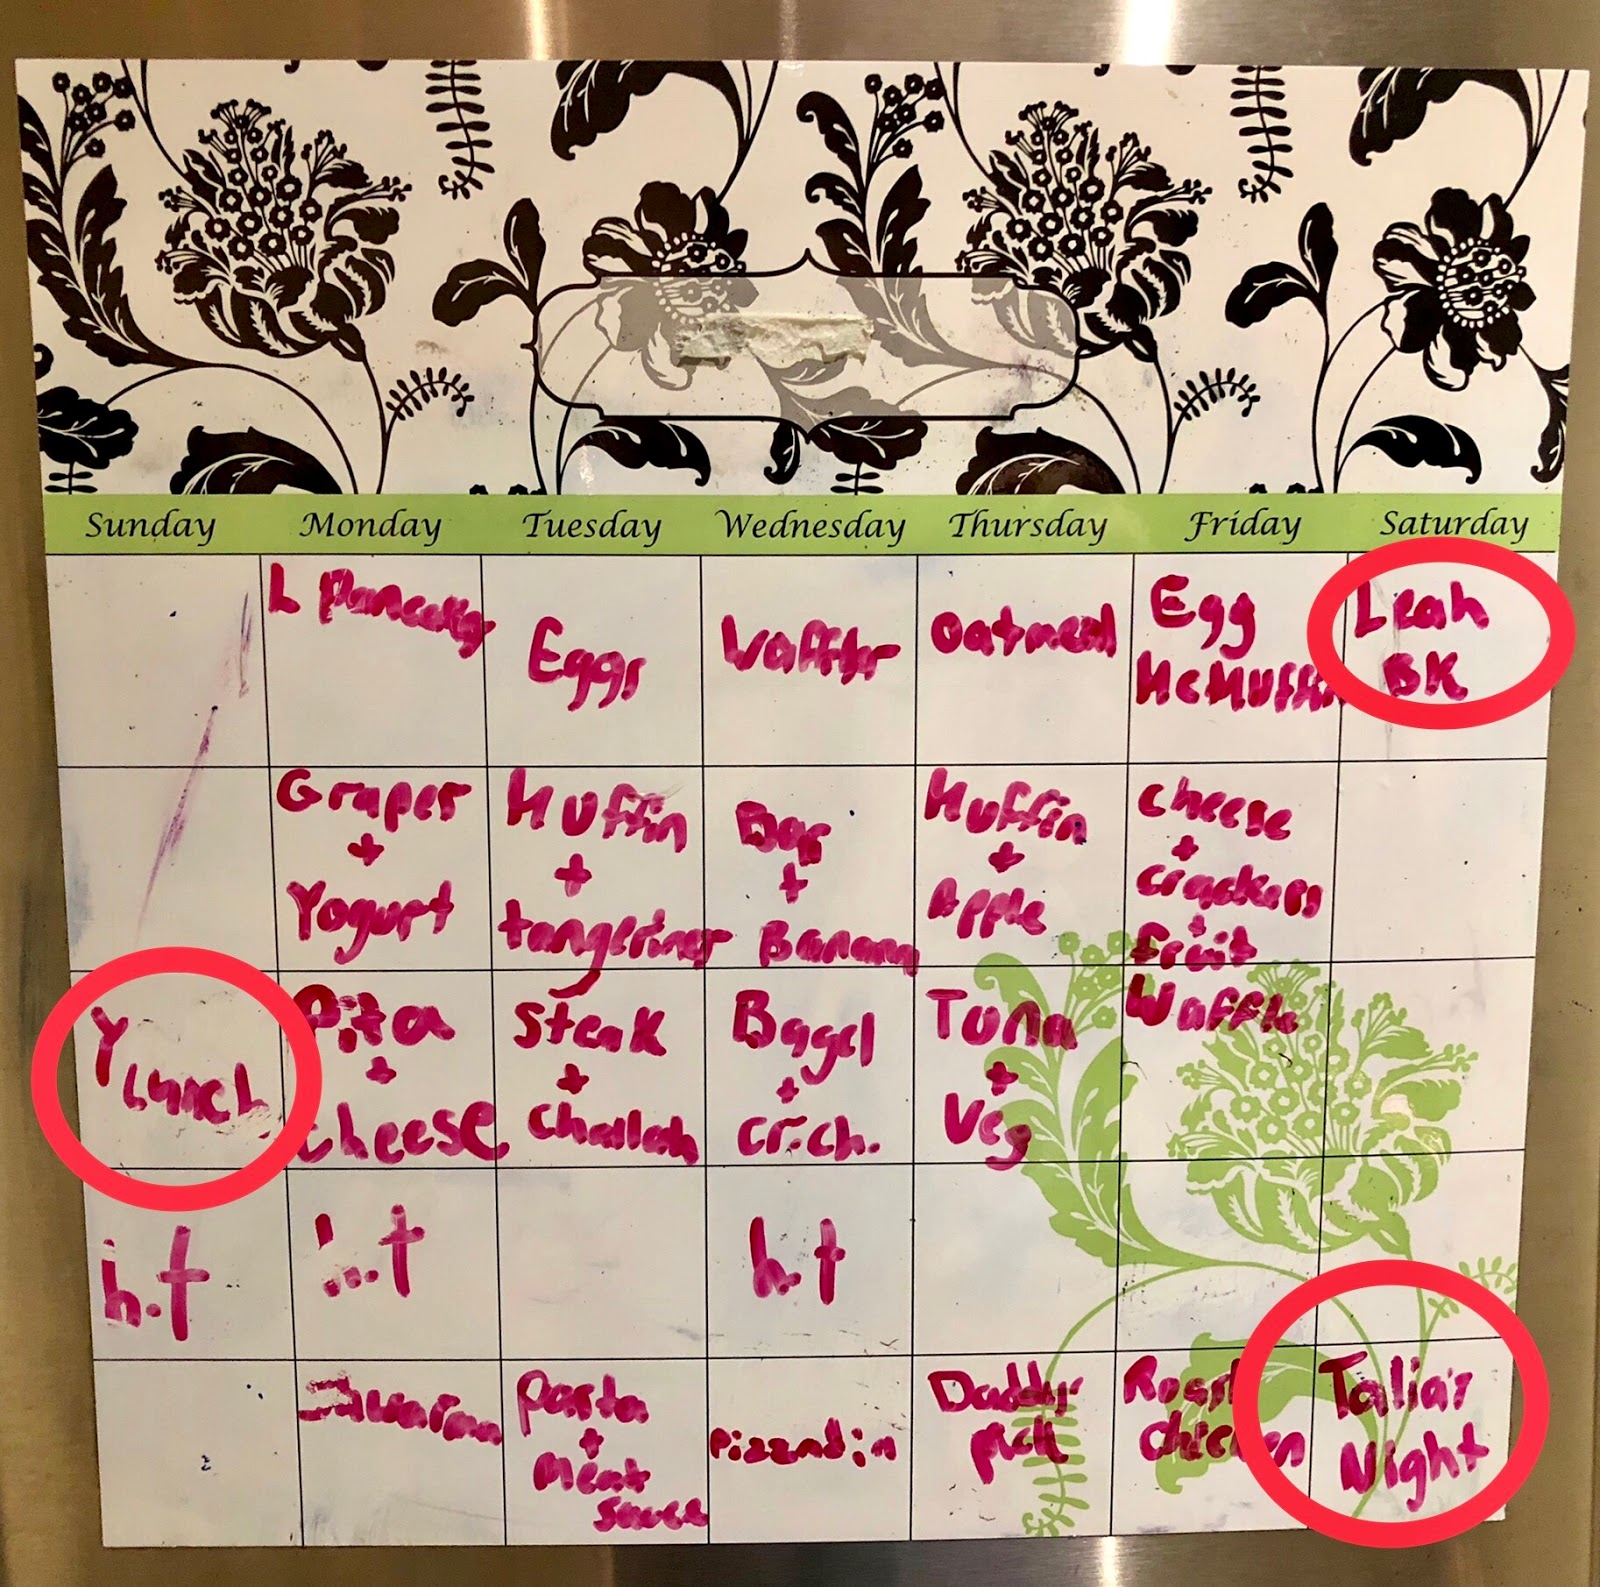 Sunday Monday Tuesday Wednesday Thursday Friday Saturday
Eggs
Oatmeal
Egg
McMuffin
Leah
BK
Grapes
+
Yogurt
Muffin
+
tangerines
Bar
+
Banana
Muffin
+
Apple
cheese
+
crackers
+
fruit
Y
Lunch
Pita
+
cheese
Steak
+
challah
Bagel
+
cr.ch.
Tuna
+
Veg
Waffle
h.t
h.t
Pasta
+
meat
sauce
Daddy
pick
Roast
chicken
Talia's
Night